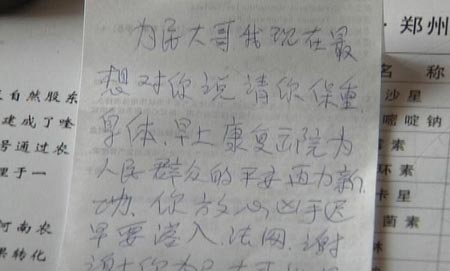 为民大哥我现在最
想对你说请你保重
身体.早上康复函院为
人民群众的平安再力新
功.你放心凶手迟
早要落入.法网.谢
郑州
名 称
沙星
嘧啶钠
素
环素
卡星
菌素
自然股东
建成了喹
号通过农
于一
河南农
果转化